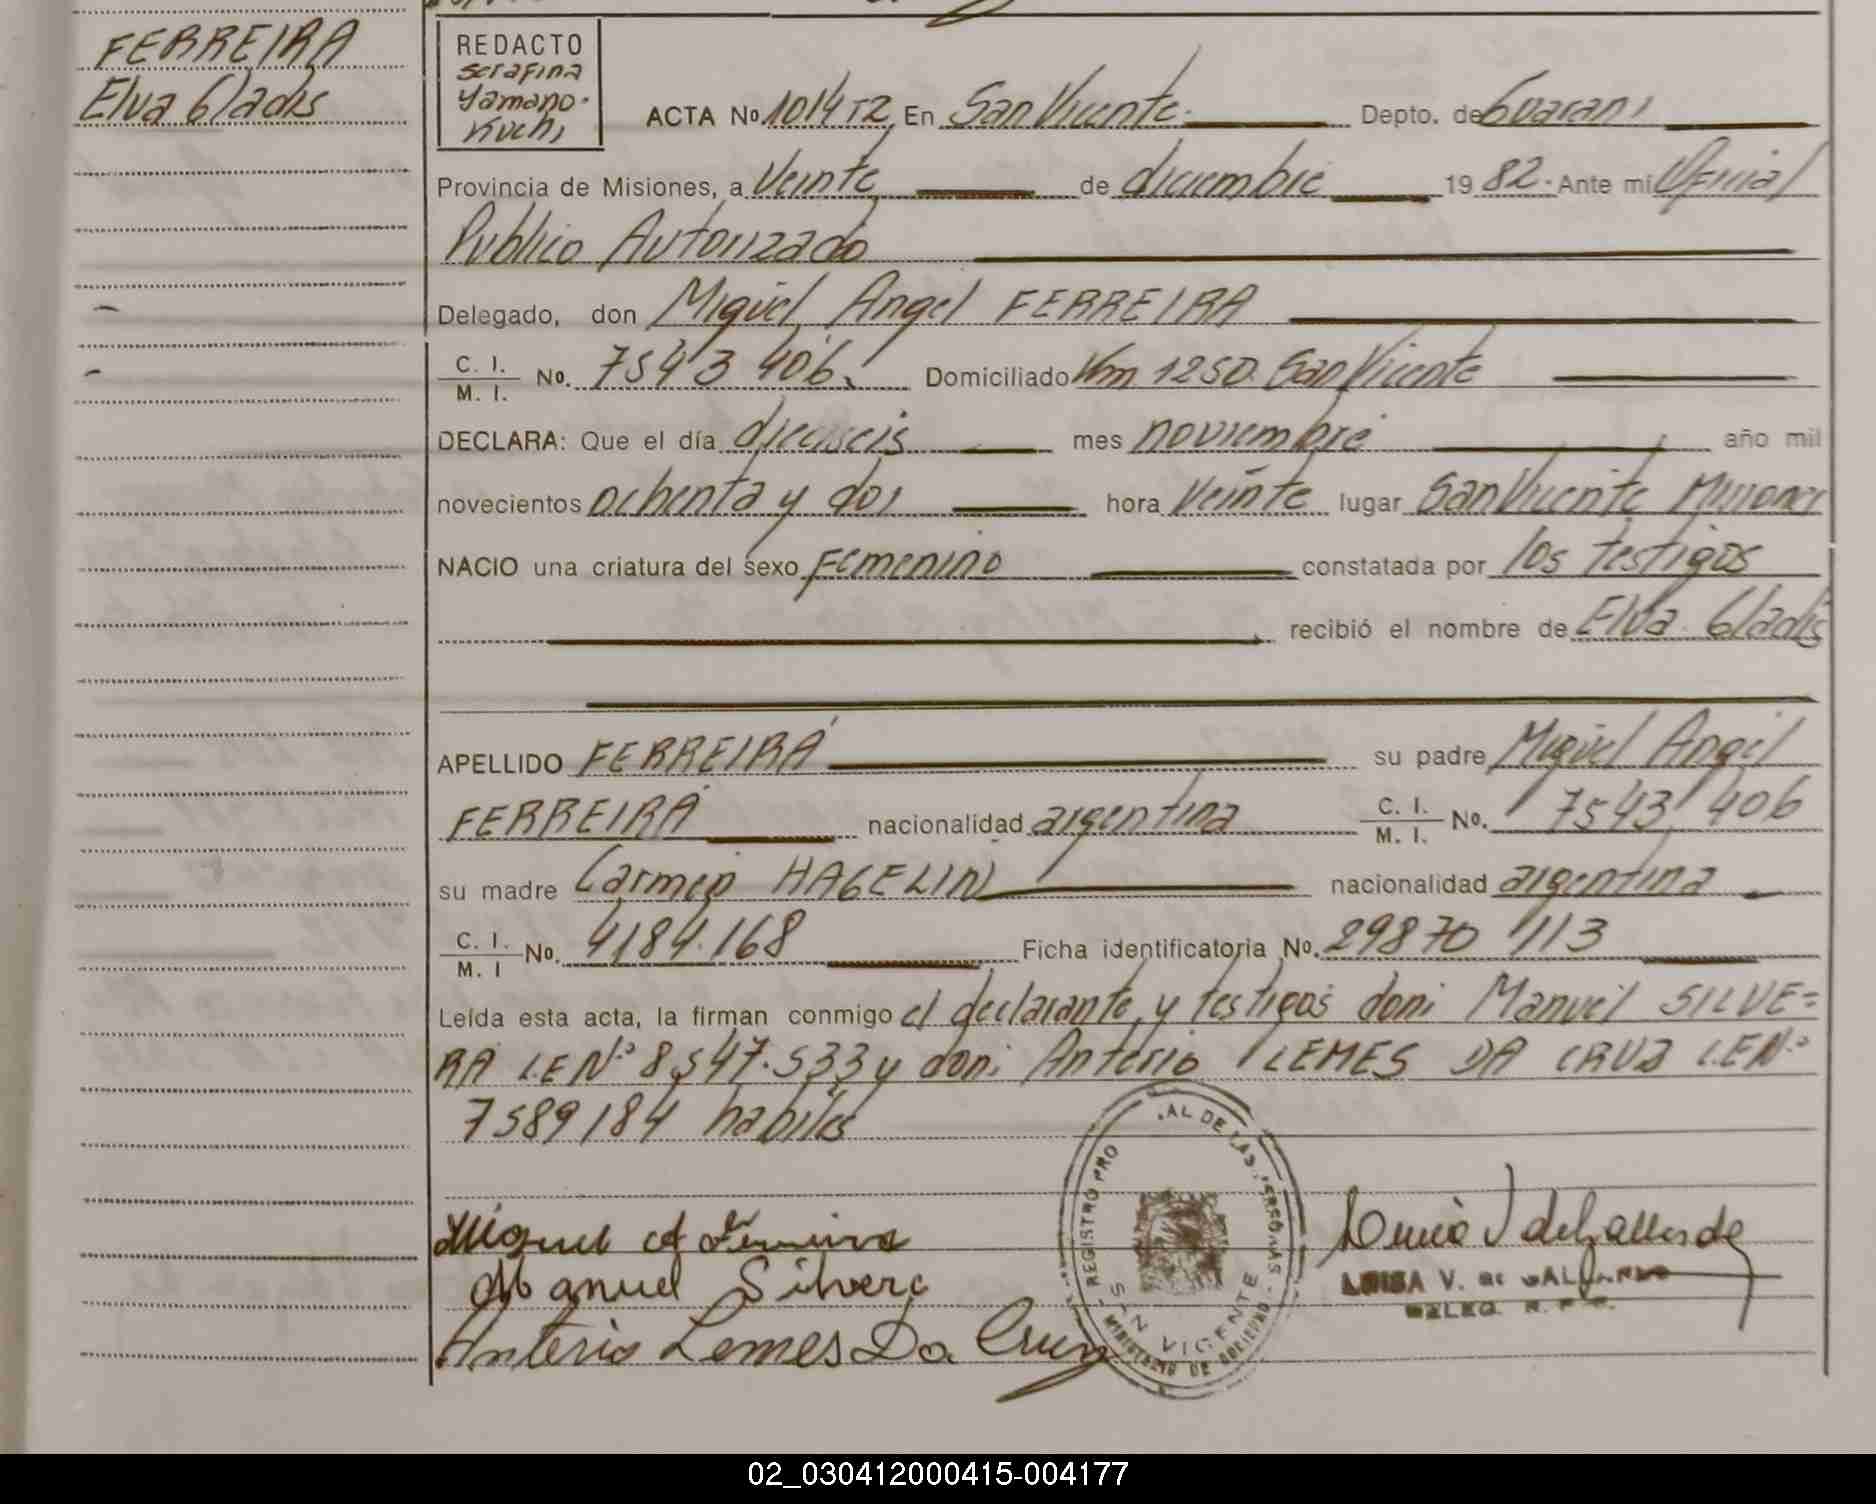 FERREIRA
Elva Gladis
REDACTO
Serafina
Yamano-
Kuchi
ACTA No 1014 T2 En San Vicente. Depto. de Guarani
Provincia de Misiones, a Veinte de diciembre 19 82. Ante mi Oficial
Publico Autorizado
Delegado, don Miguel Angel FERREIRA
C. I. / M. I. No. 7543 406. Domiciliado Km 1250. San Vicente
DECLARA: Que el día dieciseis mes noviembre año mil
novecientos ochenta y dos hora Veinte lugar San Vicente Misiones
NACIO una criatura del sexo Femenino constatada por los testigos
recibió el nombre de Elva Gladis
APELLIDO FERREIRA su padre Miguel Angel
FERREIRA nacionalidad argentina C. I. / M. I. No. 7543 406
su madre Carmen HAGELIN nacionalidad argentina
C. I. / M. I No. 4184.168 Ficha identificatoria No. 29870 113
Leída esta acta, la firman conmigo el declarante, y testigos don: Manuel SILVE=
RA L.E Nº 8547.533 y don: Anterio LEMES DA CRUZ L.E Nº
7589184 habiles
Miguel A Ferreira
Manuel Silvera
Anterio Lemes Da Cruz
REGISTRO PRO AL DE LAS PERSONAS
SAN VICENTE
MINISTERIO DE GOBIERNO
LUISA V. de GALLARDO
DELEG. R. P. P.
02_030412000415-004177